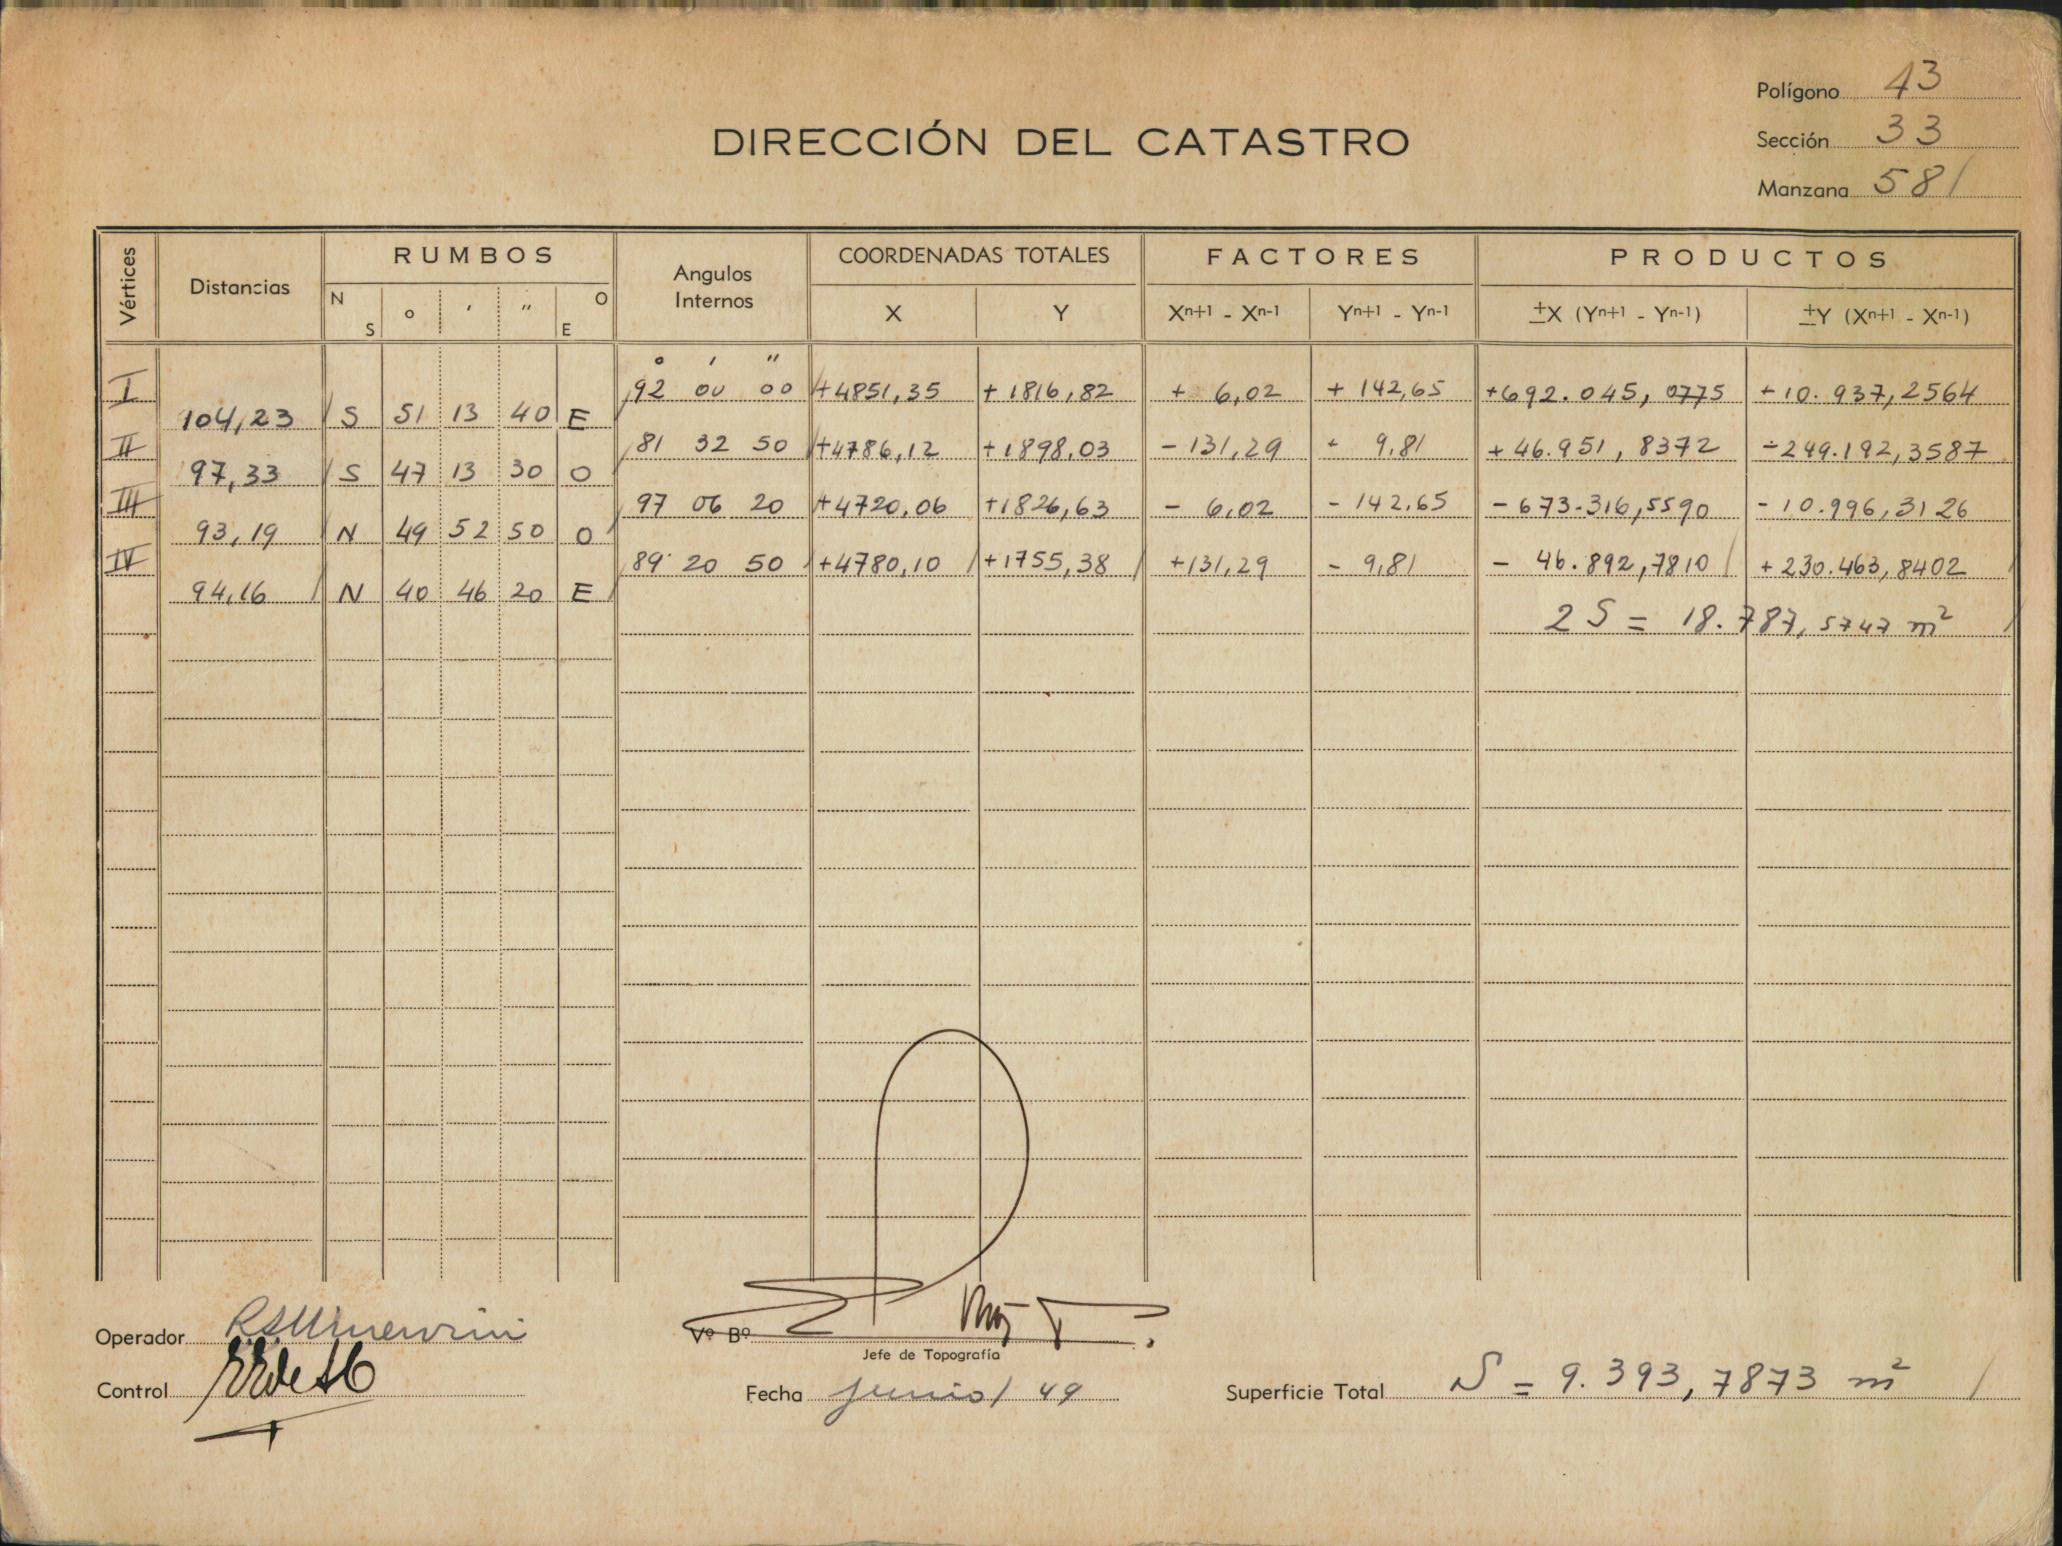 Polígono 43
DIRECCIÓN DEL CATASTRO
Sección 33
Manzana 581
Vértices Distancias RUMBOS Angulos Internos COORDENADAS TOTALES FACTORES PRODUCTOS
N S ° ' " O E X Y Xn+1 - Xn-1 Yn+1 - Yn-1 ±X (Yn+1 - Yn-1) ±Y (Xn+1 - Xn-1)
° ' "
I 92 00 00 +4851,35 +1816,82 + 6,02 + 142,65 +692.045,0775 +10.937,2564
104,23 S 51 13 40 E
II 81 32 50 +4786,12 +1898,03 -131,29 + 9,81 +46.951,8372 -249.192,3587
97,33 S 47 13 30 O
III 97 06 20 +4720,06 +1826,63 - 6,02 - 142,65 -673.316,5590 -10.996,3126
93,19 N 49 52 50 O
IV 89 20 50 +4780,10 +1755,38 +131,29 - 9,81 - 46.892,7810 +230.463,8402
94,16 N 40 46 20 E
2 S = 18.787,5747 m²
Operador
Vº Bº
Jefe de Topografía
Control
Fecha junio/49
Superficie Total S = 9.393,7873 m²